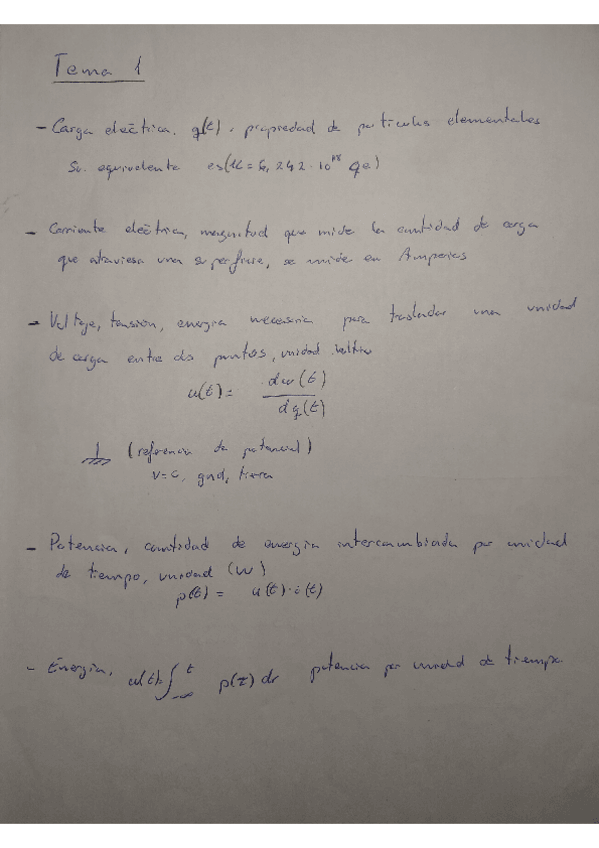 Tema 1
- Carga eléctrica. q(t). propiedad de partículas elementales
Su equivalente es (1C = 6,242·10^18 qe)
- Corriente eléctrica, magnitud que mide la cantidad de carga
que atraviesa una superficie, se mide en Amperios
- Voltaje, tensión, energía necesaria para trasladar una unidad
de carga entre dos puntos, unidad voltio
u(t) = dw(t)
dq(t)
(referencia de potencial)
v=0, gnd, tierra
- Potencia, cantidad de energía intercambiada por unidad
de tiempo, unidad (W)
p(t) = u(t)·i(t)
- Energía, w(t)=∫_{-∞}^{t} p(τ)dτ potencia por unidad de tiempo